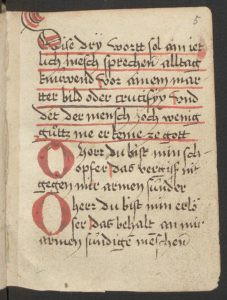 5
Dise dry wortt sol an iet
lich mesch sprechen alltag
knuwend vor ainem mar
ter bild oder crucifyx vnd
det der mensch joch wenig
guttz me er kome ze gott
O herr du bist min sch
opfer das vergiss nit
gegen mir armen sunder
O herr du bist min erlö
ser das behalt an mir
armen sündigē menschen